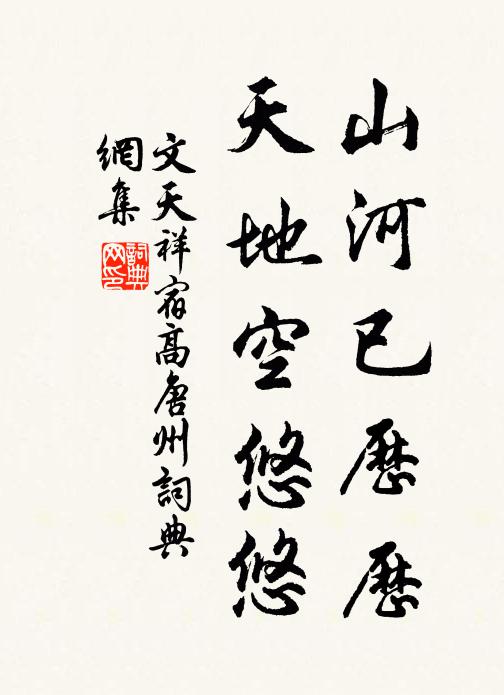 山河已歷歷
天地空悠悠
文天祥宿高唐州詞典
網集
詞典
网印